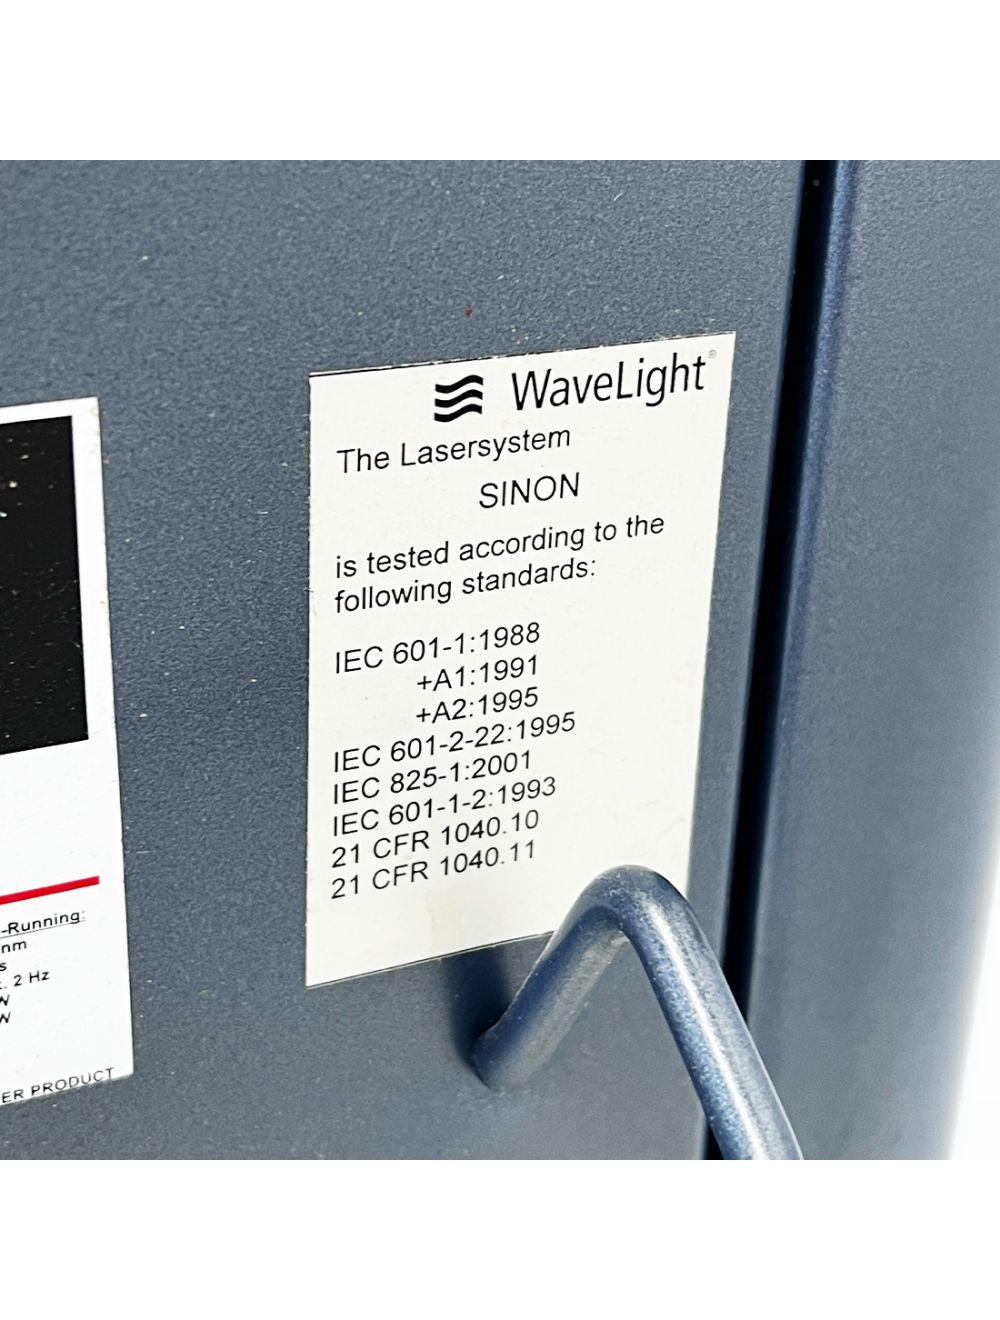 WaveLight®
The Lasersystem
SINON
is tested according to the
following standards:
IEC 601-1:1988
+A1:1991
+A2:1995
IEC 601-2-22:1995
IEC 825-1:2001
IEC 601-1-2:1993
21 CFR 1040.10
21 CFR 1040.11
-Running:
nm
s
. 2 Hz
W
W
ER PRODUCT